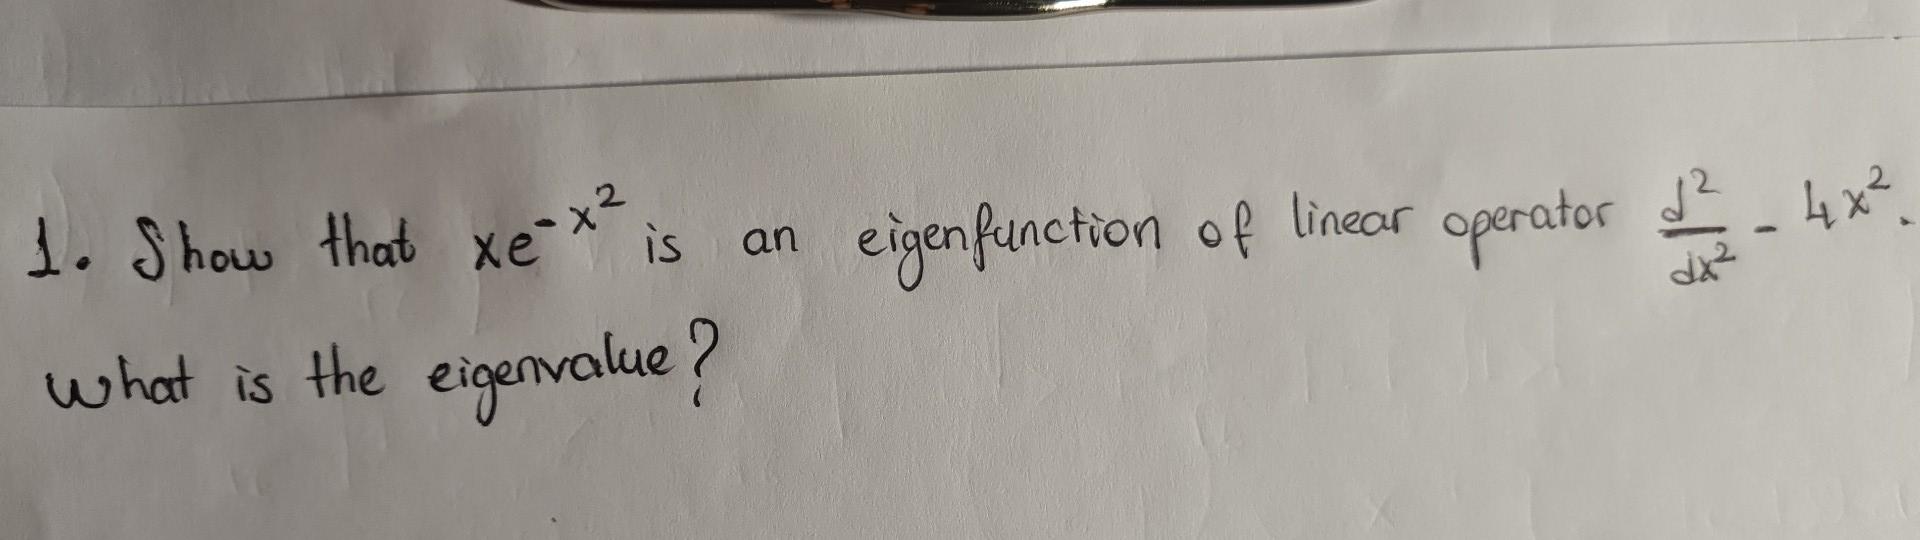 1. Show that xe^{-x^2} is an eigenfunction of linear operator \frac{d^2}{dx^2} - 4x^2.
What is the eigenvalue?